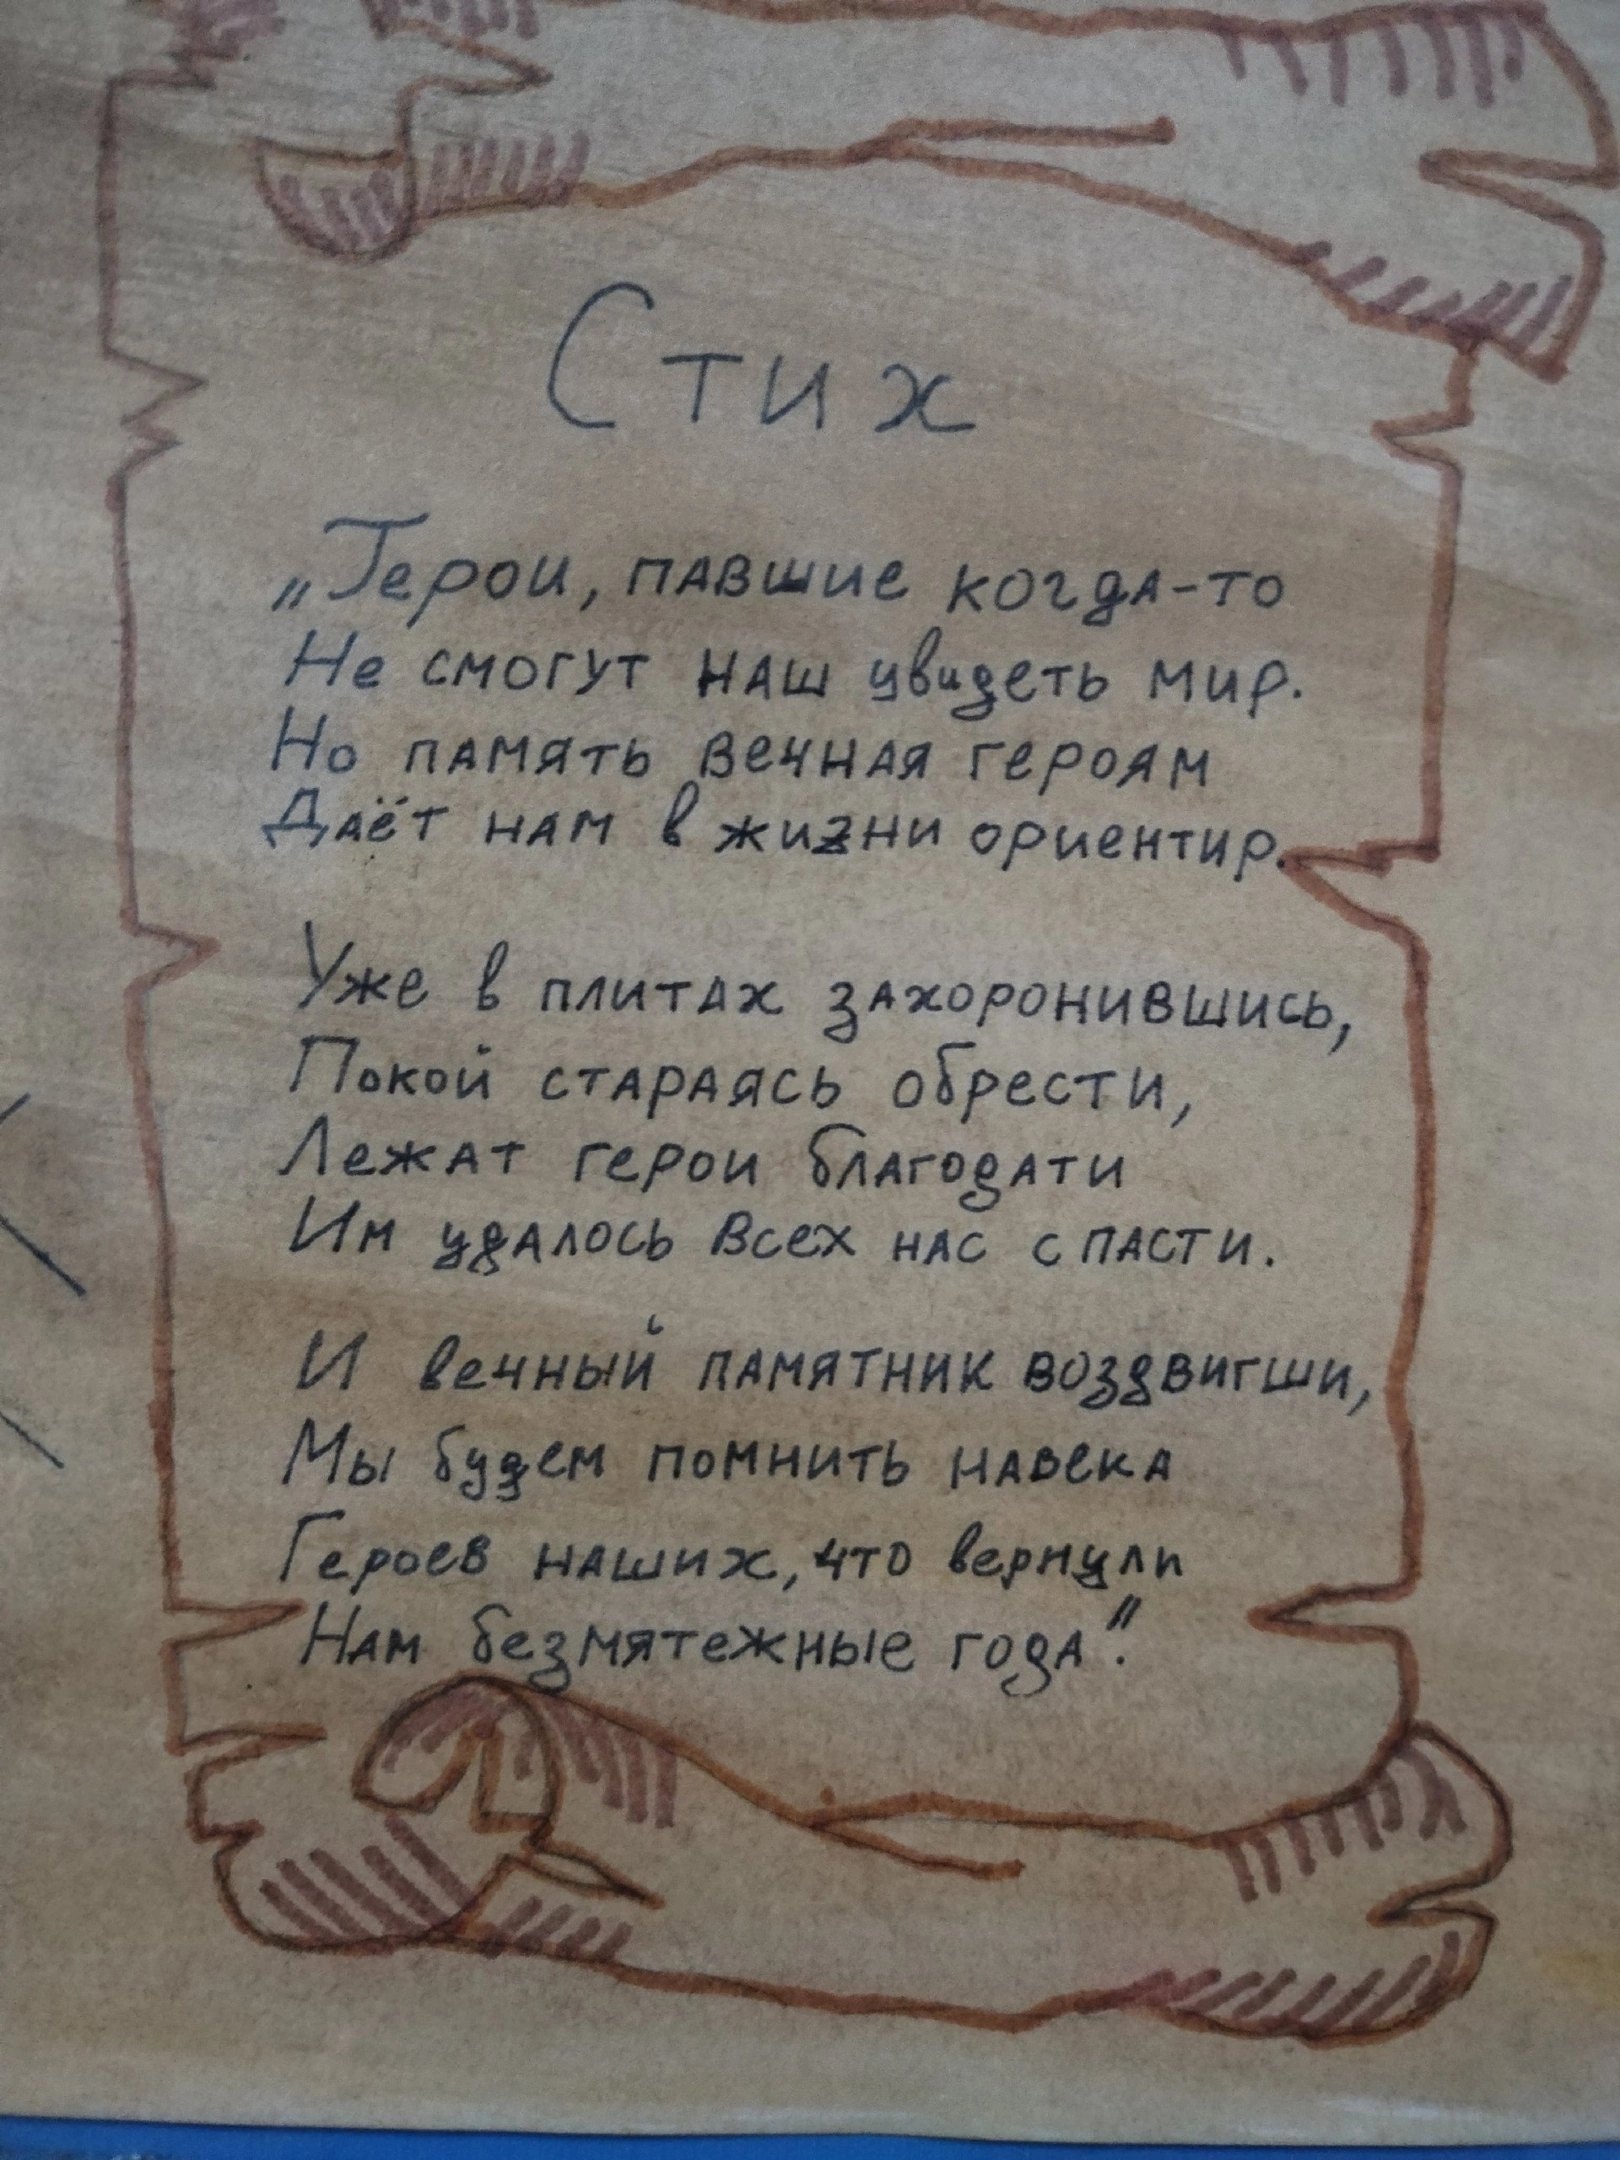 Стих
„Герои, павшие когда-то
Не смогут наш увидеть мир.
Но память вечная героям
Даёт нам в жизни ориентир.
Уже в плитах захоронившись,
Покой стараясь обрести,
Лежат герои благодати
Им удалось всех нас спасти.
И вечный памятник воздвигши,
Мы будем помнить навека
Героев наших, что вернули
Нам безмятежные года".